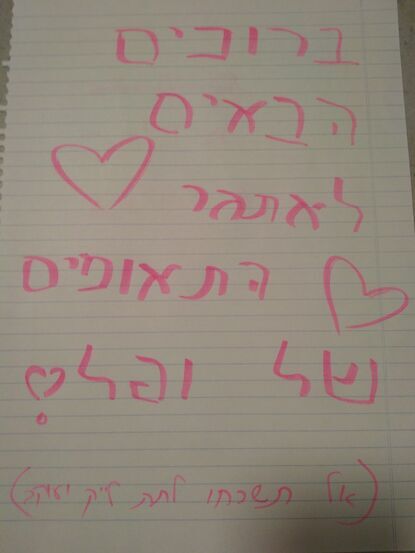 ברוכים
הבאים
לאתגר
התאומים
של ופל!
(אל תשכחו לתת לייק ועוקב)